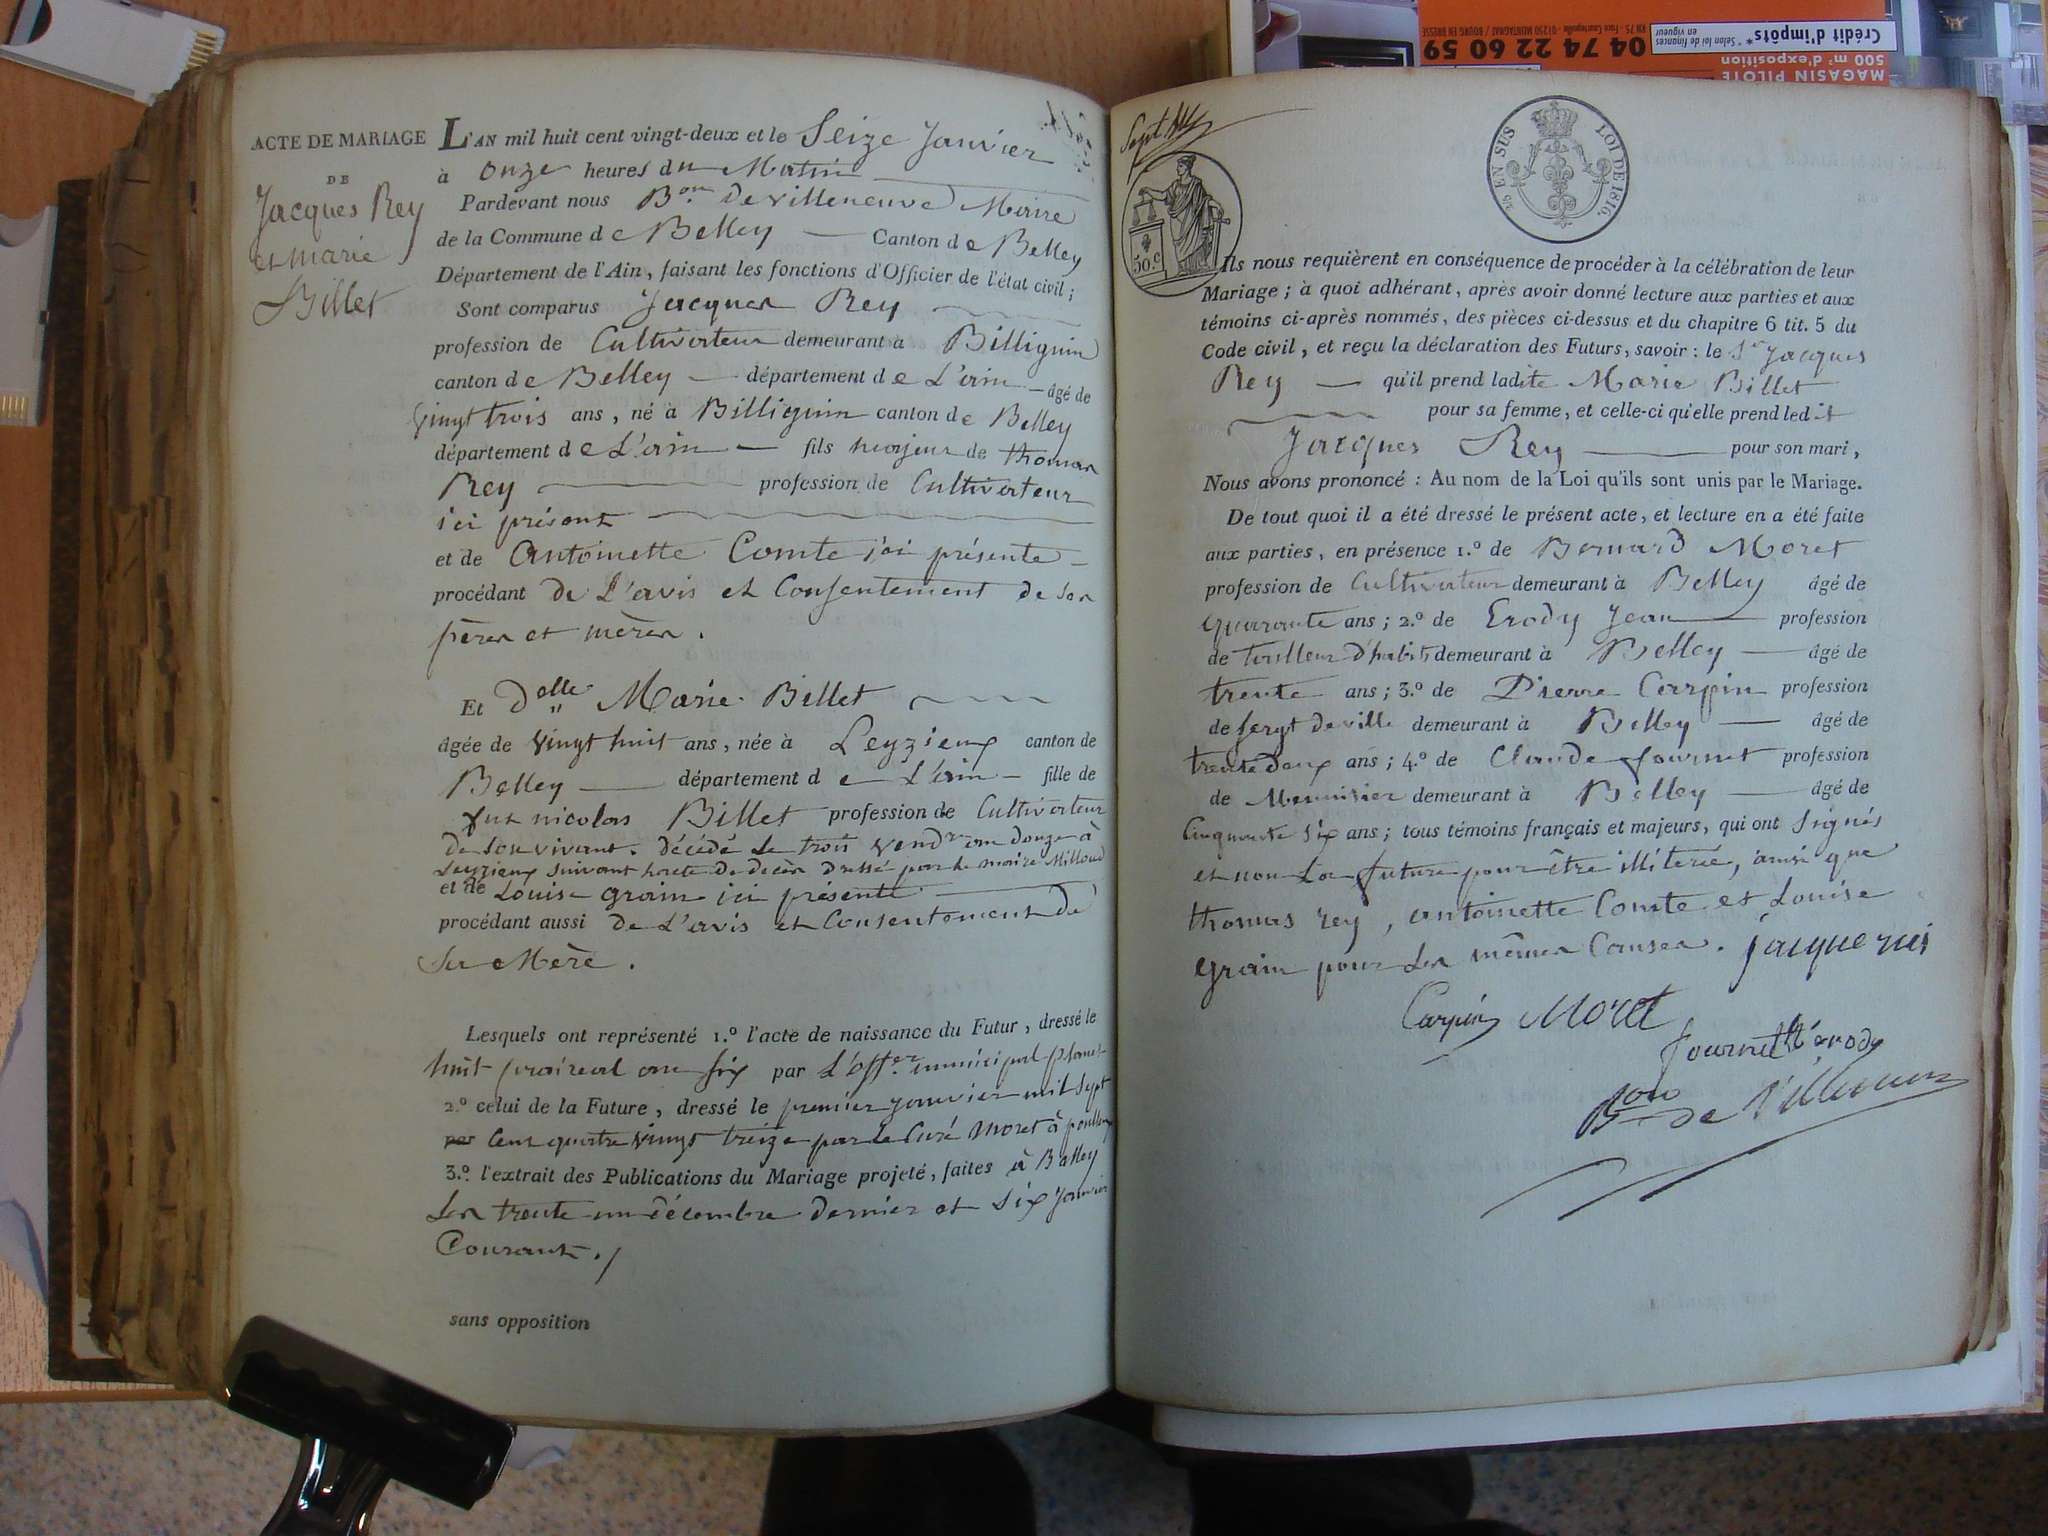 ACTE DE MARIAGE
DE
Jacques Rey
et marie
Billet
L'AN mil huit cent vingt-deux et le Seize Janvier
à onze heures du Matin
Pardevant nous Bon. De villeneuve Maire
de la Commune de Belley Canton de Belley
Département de l'Ain, faisant les fonctions d'Officier de l'état civil;
Sont comparus Jacques Rey
profession de Cultivateur demeurant à Billignin
canton de Belley département de L'ain âgé de
vingt trois ans, né à Billignin canton de Belley
département de L'ain fils majeur de thomas
Rey profession de Cultivateur
ici présent
et de Antoinette Comte ici présente
procédant de L'avis et Consentement de ses
pères et mères.
Et Delle Marie Billet
âgée de vingt huit ans, née à Leyzieux canton de
Belley département de L'ain fille de
fut nicolas Billet profession de Cultivateur
de son vivant. décédé le trois vendre an douze à
Leyzieux suivant l'acte de decès dressé par le maire Milloud
et de Louise grain ici présente
procédant aussi de L'avis et Consentement de
Sa Mère.
Lesquels ont représenté 1.º l'acte de naissance du Futur, dressé le
huit prairial an six par L'offer. municipal
2.º celui de la Future, dressé le premier janvier mil sept
par Cent quatre vingt treize par le Curé Moret à
3.º l'extrait des Publications du Mariage projeté, faites à Belley
Les trente un décembre dernier et six janvier
Courant./
sans opposition
50.c
25 EN SUS LOI DE 1816.
Ils nous requièrent en conséquence de procéder à la célébration de leur
Mariage; à quoi adhérant, après avoir donné lecture aux parties et aux
témoins ci-après nommés, des pièces ci-dessus et du chapitre 6 tit. 5 du
Code civil, et reçu la déclaration des Futurs, savoir: le Sr Jacques
Rey qu'il prend ladite Marie Billet
pour sa femme, et celle-ci qu'elle prend ledit
Jacques Rey pour son mari,
Nous avons prononcé: Au nom de la Loi qu'ils sont unis par le Mariage.
De tout quoi il a été dressé le présent acte, et lecture en a été faite
aux parties, en présence 1.º de Bernard Moret
profession de Cultivateur demeurant à Belley âgé de
quarante ans; 2.º de Erody Jean profession
de tailleur d'habits demeurant à Belley âgé de
trente ans; 3.º de Pierre Carpin profession
de sergt de ville demeurant à Belley âgé de
trente deux ans; 4.º de Claude fournet profession
de Menuisier demeurant à Belley âgé de
Cinquante six ans; tous témoins français et majeurs, qui ont signés
et non La future pour être illiterée, ainsi que
thomas rey, antoinette Comte et Louise
grain pour les mêmes Causes. jaque reis
Carpin Moret
fournet hérody
Bon de Villeneuve
MAGASIN PILOTE
500 m² d'exposition
Crédit d'impôts*
* Selon loi de finances
en vigueur
04 74 22 60 59
RN 75 - Face Courtepaille - 01250 MONTAGNAT / BOURG EN BRESSE